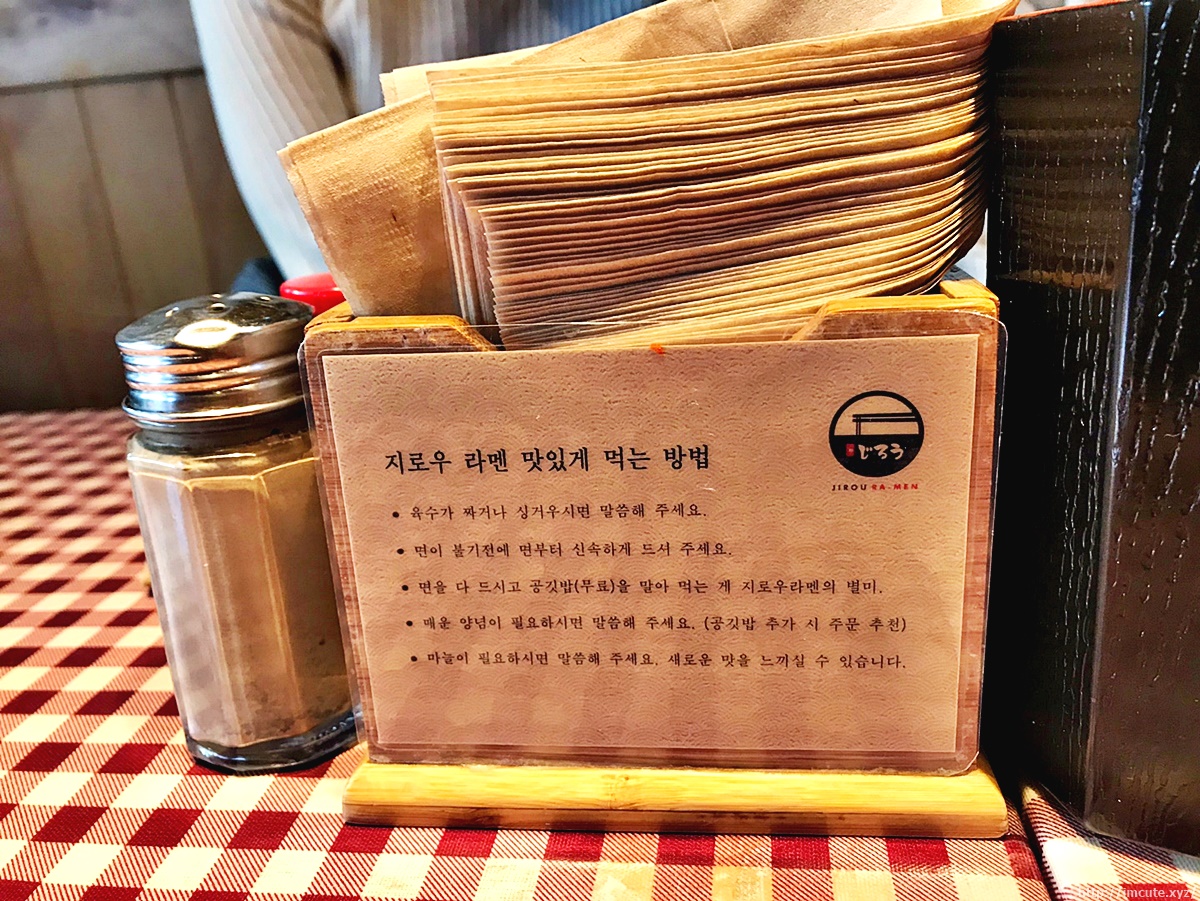 じろう
JIROU RA-MEN
지로우 라멘 맛있게 먹는 방법
• 육수가 짜거나 싱거우시면 말씀해 주세요.
• 면이 불기전에 면부터 신속하게 드셔 주세요.
• 면을 다 드시고 공깃밥(무료)을 말아 먹는 게 지로우라멘의 별미.
• 매운 양념이 필요하시면 말씀해 주세요. (공깃밥 추가 시 주문 추천)
• 마늘이 필요하시면 말씀해 주세요. 새로운 맛을 느끼실 수 있습니다.
http://imcute.xyz/